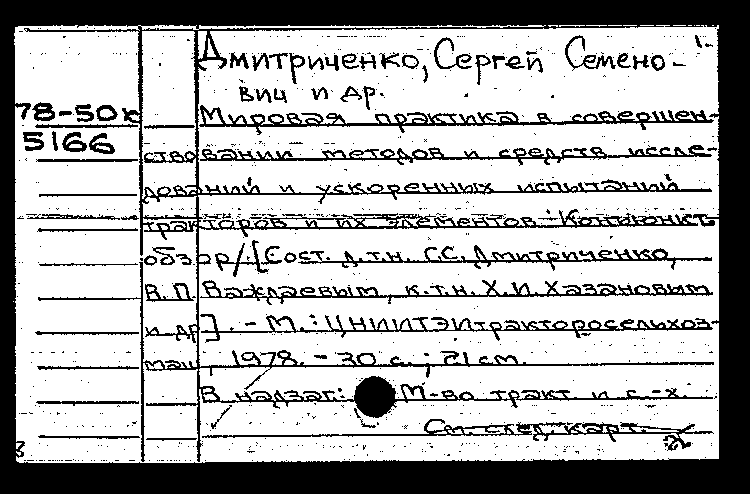 Дмитриченко, Сергей Семено-
вич и др.
78-50к
5166
Мировая практика в совершен-
ствовании методов и средств иссле-
дований и ускоренных испытаний
тракторов и их элементов: Конъюнкт.
обзор/.[Сост. д.т.н. С.С. Дмитриченко,
В.П. Важдаевым, к.т.н. Х.И. Хазановым
и др]. - М.: ЦНИИТЭИтракторосельхоз-
маш, 1978. - 30 с.; 21 см.
В надзаг: М-во тракт и с.-х.
См. след. карт.